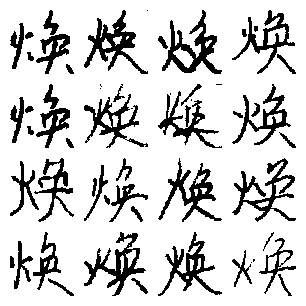 焕焕焕焕
焕焕焕焕
焕焕焕焕
焕焕焕焕